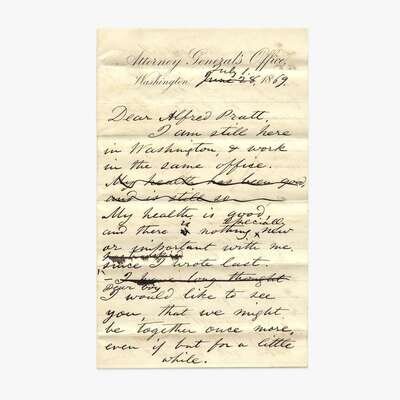 Attorney General's Office,
July 1.
Washington. June 28, 1869.
Dear Alfred Pratt,
I am still here
in Washington, & work
in the same office.
My health has been good,
and is still so
My health is good,
especially
and there is nothing new
or important with me,
since I wrote last.
I have long thought
Dear boy
I would like to see
you, that we might
be together once more,
even if but for a little
while.